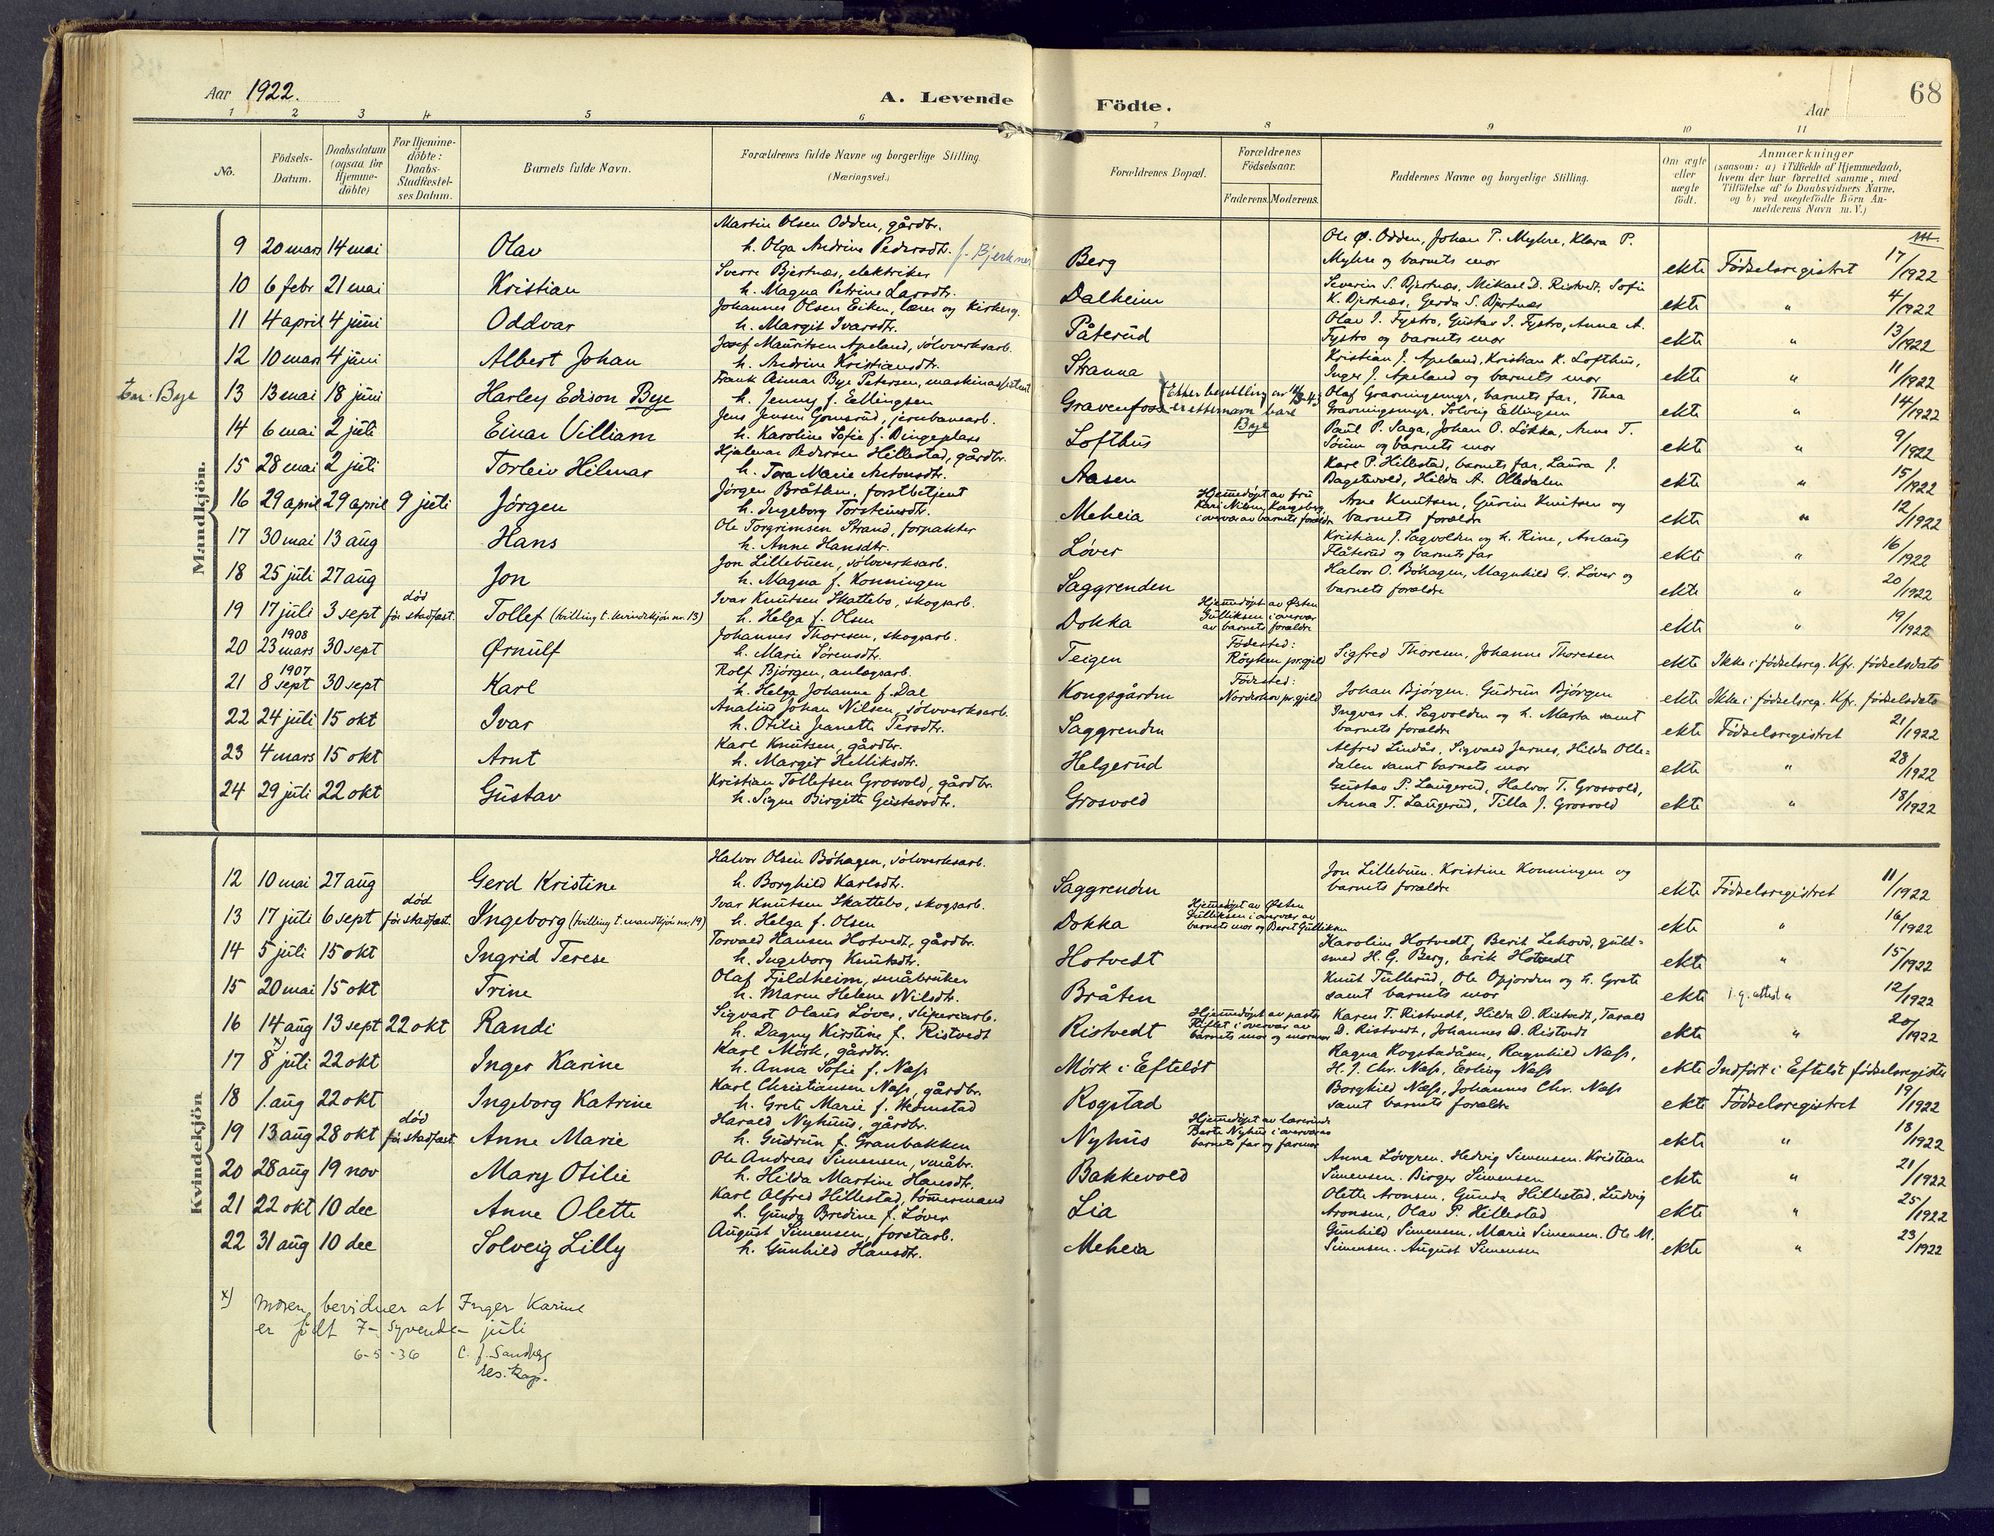 Aar 1922.
A. Levende Födte.
Aar
68
1 2 3 4 5 6 7 8 9 10 11
No.
Födsels-Datum.
Daabsdatum (ogsaa for Hjemme-döbte)
For Hjemme-döbte: Daabs-Stadfæstel-ses Datum.
Barnets fulde Navn.
Forældrenes fulde Navne og borgerlige Stilling. (Næringsvei.)
Forældrenes Bopæl.
Forældrenes Födselsaar.
Faderens. Moderens.
Faddernes Navne og borgerlige Stilling.
Om ægte eller uægte födt.
Anmærkninger
(saasom: a) i Tilfælde af Hjemmedaab, hvem der har forrettet samme, med Tilföielse af to Daabsvidners Navne, og b) ved uægtefödte Börn An-melderens Navn m. V.)
Mandkjön.
Martin Olsen Odden, gårdbr. Ole Ø. Odden, Johan P. Myhre, Klara P.
9 20 mars 14 mai Olav h. Olga Andrine Pedersdtr. f. Bjerknes Berg Myhre og barnets mor ekte Födselsregistret 17/1922
Sverre Bjertnæs, elektriker Severin S. Bjertnæs, Mikael D. Ristvedt, Sofie
10 6 febr 21 mai Kristian h. Magna Petrine Larsdtr. Dalheim K. Bjertnæs, Gerda S. Bjertnæs ekte " 4/1922
Johannes Olsen Eiken, lærer og kirkesg. Olav I. Fystro, Gustav I. Fystro, Anna A.
11 4 april 4 juni Oddvar h. Margit Ivarsdtr. Påterud Fystro og barnets mor ekte " 13/1922
Josef Mauritsen Apeland, sölvverksarb. Kristian J. Apeland, Kristian K. Lofthus,
12 10 mars 4 juni Albert Johan h. Andrine Kristiansdtr. Stranna Inger J. Apeland og barnets mor ekte " 11/1922
Frank Asmar Bye Petersen, maskinassistent Olaf Gravningsmyr, barnets far, Thea
Em. Bye 13 13 mai 18 juni Harley Edison Bye h. Jenny f. Ellingsen Gravenfoss (Etter bevilling av 14/3-43 er etternavn bare Bye Gravningsmyr, Solveig Ellingsen ekte " 14/1922
Jens Jensen Gomsrud, jernbanearb. Paul P. Saga, Johan O. Løkka, Anne T.
14 6 mai 2 juli Einar Villiam h. Karoline Sofie f. Dingeplass Lofthus Söum og barnets mor ekte " 9/1922
Hjalmar Pedersen Hillestad, gårdbr. Karl P. Hillestad, barnets far, Laura J.
15 28 mai 2 juli Torleiv Hilmar h. Tora Marie Antonsdtr. Aasen Bagstevold, Hilda A. Olledalen ekte " 15/1922
Jørgen Bråthen, forstbetjent Hjemmedöpt av fru Arne Knutsen, Gurine Knutsen og
16 29 april 29 april 9 juli Jørgen h. Ingeborg Torsteinsdtr. Meheia Kari Nilsen, Kongsberg, i overvær av barnets foreldre barnets foreldre ekte " 12/1922
Ole Torgrimsen Strand, forpakter Kristian J. Sagvolden og h. Rine, Anlaug
17 30 mai 13 aug Hans h. Anne Hansdtr. Løver Flåterud og barnets far ekte " 16/1922
Jon Lillebuen, sölvverksarb. Halvor O. Böhagen, Magnhild G. Løver og
18 25 juli 27 aug Jon h. Magna f. Konningen Saggrenden barnets foreldre ekte " 20/1922
Ivar Knutsen Skattebo, skogsarb. Hjemmedöpt av Østen
19 17 juli 3 sept död för stadfæst. Tollef (tvilling t. kvindekjön nr. 13) h. Helga f. Olsen Dokka Gulliksen i overvær av barnets foreldre ekte " 19/1922
1908 Johannes Thoresen, skogsarb. Födested:
20 23 mars 30 sept Ørnulf h. Marie Sørensdtr. Teigen Röyken pr.gjeld Sigfred Thoresen, Johanne Thoresen ekte Ikke i födselsreg. Kfr. födselsdato
1907 Rolf Bjørgen, anlegsarb. Födested:
21 8 sept 30 sept Karl h. Helga Johanne f. Dal Kongsgården Norderhov pr.gjeld Johan Bjørgen. Gudrun Bjørgen ekte Ikke i födselsreg. Kfr. födselsdato
Analius Johan Nilsen, sölvverksarb. Ingvar A. Sagvolden og h. Marta samt
22 24 juli 15 okt Ivar h. Otilie Jeanette Persdtr. Saggrenden barnets foreldre ekte Födselsregistret 21/1922
Karl Knutsen, gårdbr. Alfred Lindås, Sigvald Jarnes, Hilda Olle-
23 4 mars 15 okt Arnt h. Margit Helliksdtr. Helgerud dalen samt barnets mor ekte " 28/1922
Kristian Tollefsen Grosvold, gårdbr. Gustav P. Laugerud, Halvor T. Grosvold,
24 29 juli 22 okt Gustav h. Signe Birgitte Gustavsdtr. Grosvold Anna T. Laugerud, Tilla J. Grosvold ekte " 18/1922
Kvindekjön
Halvor Olsen Böhagen, sölvverksarb. Jon Lillebuen. Kristine Konningen og
12 10 mai 27 aug Gerd Kristine h. Borghild Karlsdtr. Saggrenden barnets foreldre ekte Födselsregistret 11/1922
Ivar Knutsen Skattebo, skogsarb. Hjemmedöpt av Østen
13 17 juli 6 sept död för stadfæst. Ingeborg (tvilling t. mandkjön nr. 19) h. Helga f. Olsen Dokka Gulliksen i overvær av barnets mor og Berit Gulliksen ekte " 16/1922
Torvald Hansen Hotvedt, gårdbr. Karoline Hotvedt, Berit Lehovd, guld-
14 5 juli 15 okt Ingrid Terese h. Ingeborg Knutsdtr. Hotvedt smed H. G. Berg, Erik Hotvedt ekte " 15/1922
Olaf Fjeldheim, småbruker Knut Tullerud, Ole Opjorden og h. Grete
15 20 mai 15 okt Trine h. Maren Helene Nilsdtr. Bråten samt barnets mor ekte i.g. attest " 12/1922
Sigvart Olaus Løver, sliperiarb. Hjemmedöpt av pastor Karen T. Ristvedt, Hilda D. Ristvedt, Tarald
16 14 aug 13 sept 22 okt Randi h. Dagny Kirstine f. Ristvedt Ristvedt i overvær av barnets mor og mormor D. Ristvedt, Johannes D. Ristvedt ekte " 20/1922
Karl Mörk, gårdbr. Ragna Rogstadåsen, Ragnhild Næss,
17 x) 8 juli 22 okt Inger Karine h. Anna Sofie f. Næss Mørk i Efteløt H. J. Chr. Næss, Erling Næss ekte Indfört i Efteløt födselsregister
Karl Christiansen Næss, gårdbr. Borghild Næss, Johannes Chr. Næss
18 1. aug 22 okt Ingeborg Katrine h. Grete Marie f. Skomstad Rogstad samt barnets foreldre ekte Födselsregistret 19/1922
Harald Nyhuus, gårdbr. Hjemmedöpt av lærerinde
19 13 aug 28 okt död för stadfæst. Anne Marie h. Gudrun f. Granbakken Nyhus Berte Nyhus i overvær av barnets far og farmor ekte " 18/1922
Ole Andreas Simensen, småbr. Anna Lövgren. Hedvig Simensen. Kristian
20 28 aug 19 nov Mary Otilie h. Hilda Martine Hansdtr. Bakkevold Simensen. Birger Simensen ekte " 21/1922
Karl Alfred Hillestad, tömmermand Olette Aronsen, Gunda Hillestad, Ludvig
21 22 okt 10 dec Anne Olette h. Gunda Bredine f. Løver Lia Aronsen, Olav P. Hillestad ekte " 25/1922
August Simensen, forstarb. Gunhild Simensen, Marie Simensen. Ole M.
22 31 aug 10 dec Solveig Lilly h. Gunhild Hansdtr. Meheia Simensen. August Simensen ekte " 23/1922
x) Moren bevidner at Inger Karine
er født 7 - syvende - juli
6-5-36 C. f. Sandberg
res. kap.